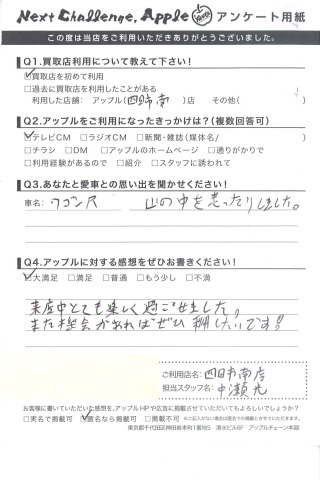 Next Challenge, Apple アンケート用紙
この度は当店をご利用いただきありがとうございました。
Q1.買取店利用について教えて下さい!
☑買取店を初めて利用
□過去に買取店を利用したことがある
利用した店舗: アップル(四日市南)店 その他( )
Q2.アップルをご利用になったきっかけは?(複数回答可)
☑テレビCM □ラジオCM □新聞・雑誌(媒体名/ )
□チラシ □DM □アップルのホームページ □通りがかりで
□利用経験があるので □紹介 □スタッフに誘われて
Q3.あなたと愛車との思い出を聞かせください!
車名: ワゴンR 山の中を走ったりしました。
Q4.アップルに対する感想をぜひお書きください!
☑大満足 □満足 □普通 □もう少し □不満
来店中とても楽しく過ごせました。
また機会があればぜひ利用したいです!!
ご利用店名: 四日市南店
担当スタッフ名: 中瀬
お客様に書いていただいた感想を、アップルHPや広告に掲載させていただいてもよろしいでしょうか?
□実名で掲載可 ☑匿名なら掲載可 □掲載不可
東京都千代田区神田岩本町1番地5 清水ビル6F アップルチェーン本部